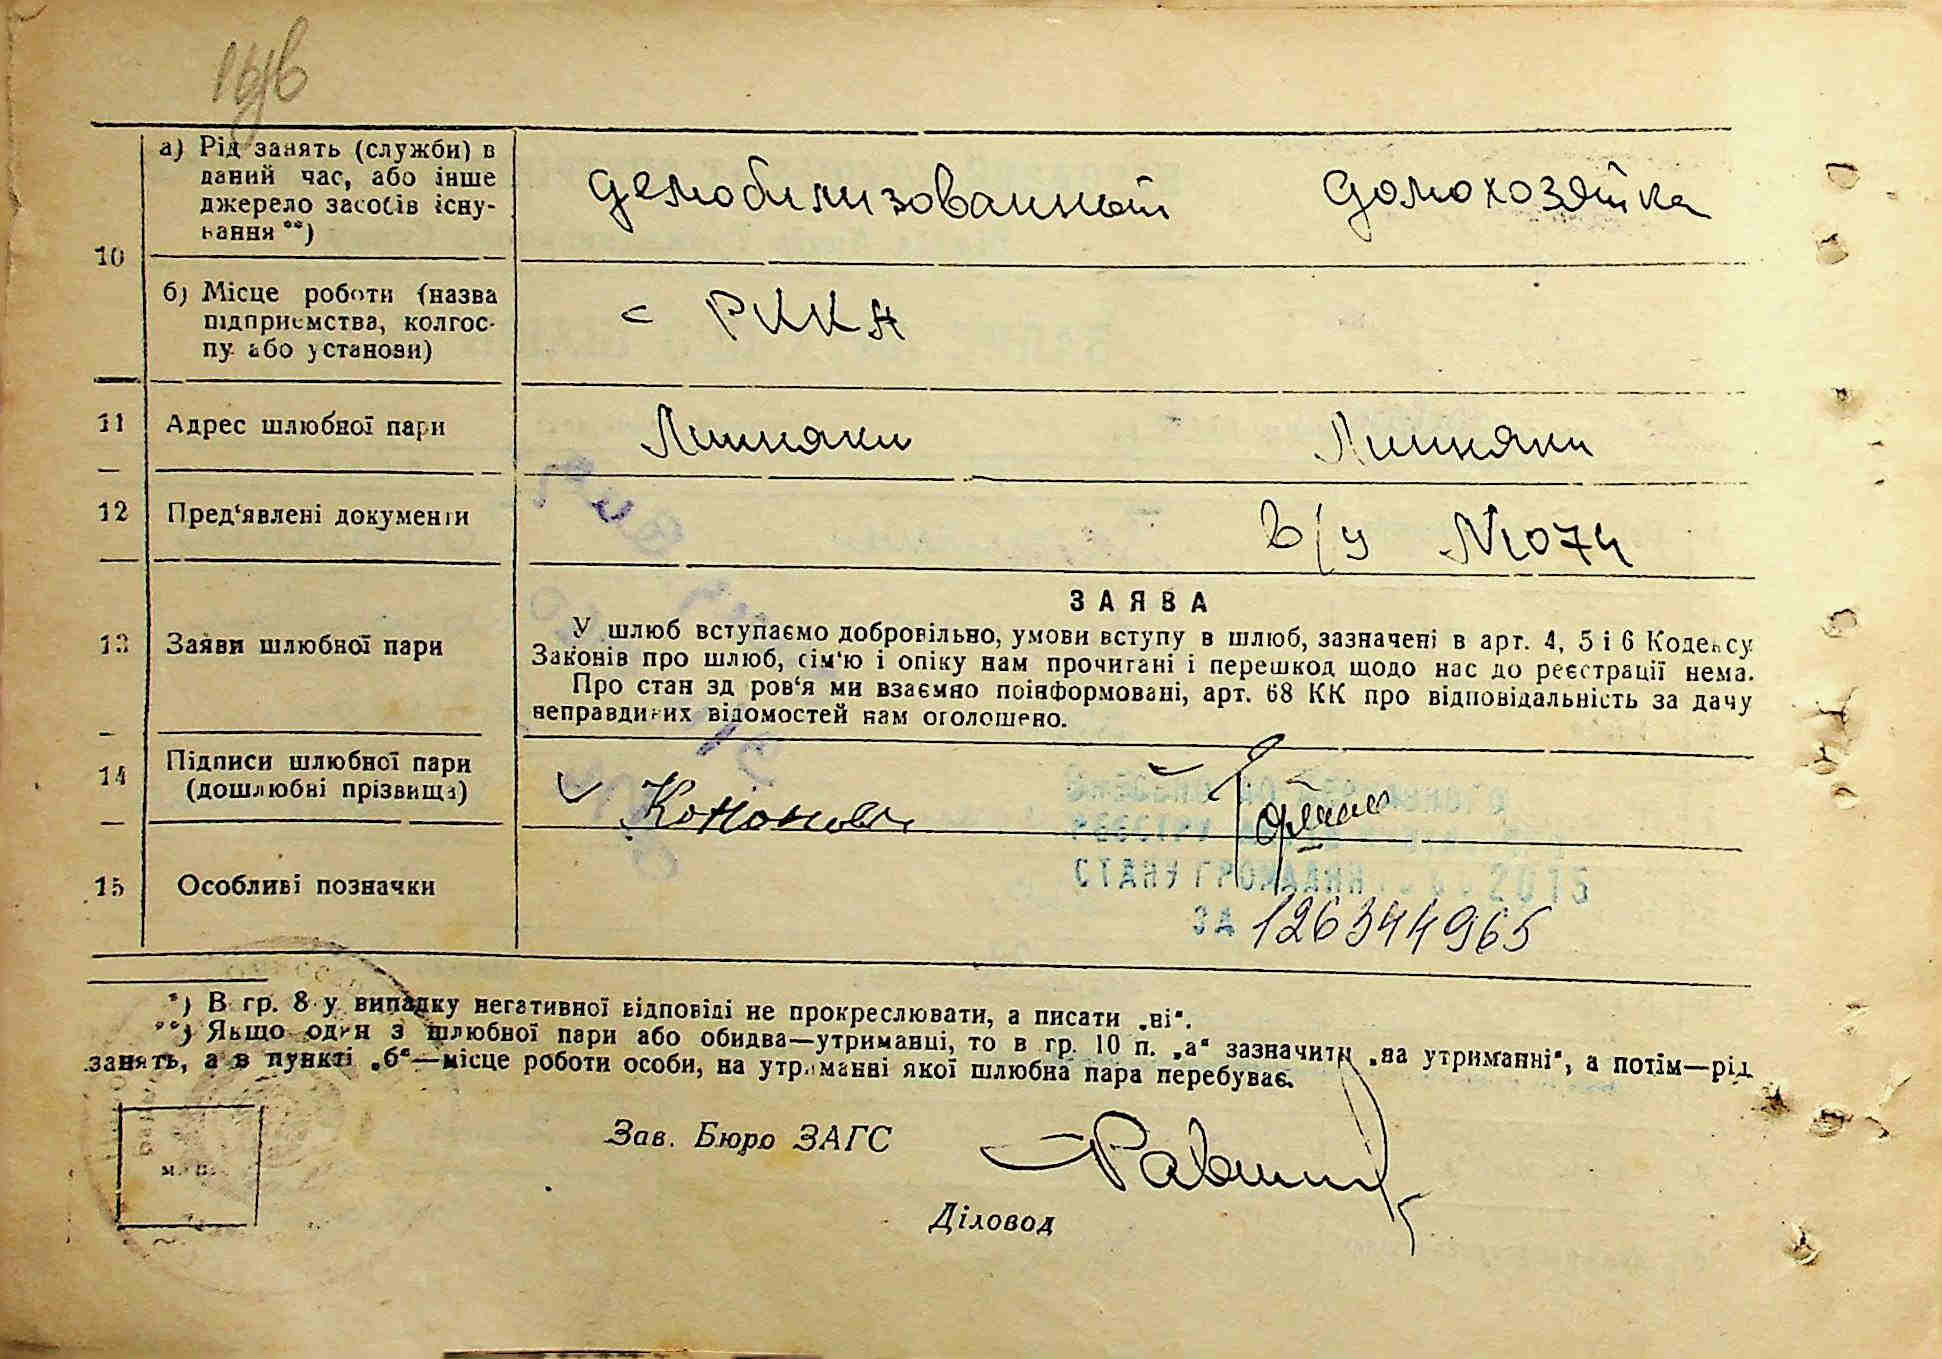 а) Рід занять (служби) в
даний час, або інше
джерело засобів існу-
вання **)
демобилизованный домохозяйка
10
б) Місце роботи (назва
підприємства, колгос-
пу або установи)
с РККА
11 Адрес шлюбної пари
12 Пред‘явлені документи
в/у №1074
ЗАЯВА
13 Заяви шлюбної пари
У шлюб вступаємо добровільно, умови вступу в шлюб, зазначені в арт. 4, 5 і 6 Кодексу
Законів про шлюб, сім‘ю і опіку нам прочитані і перешкод щодо нас до реєстрації нема.
Про стан здоров‘я ми взаємно поінформовані, арт. 68 КК про відповідальність за дачу
неправдивих відомостей нам оголошено.
14 Підписи шлюбної пари
(дошлюбні прізвища)
15 Особливі позначки
СТАНУ ГРОМАДЯН 2015
ЗА 126344965
*) В гр. 8 у випадку негативної відповіді не прокреслювати, а писати „ні“.
**) Якщо один з шлюбної пари або обидва—утриманці, то в гр. 10 п. „а“ зазначити „на утриманні“, а потім—рід
занять, а в пункті „б“—місце роботи особи, на утриманні якої шлюбна пара перебуває.
Зав. Бюро ЗАГС
м. п.
Діловод